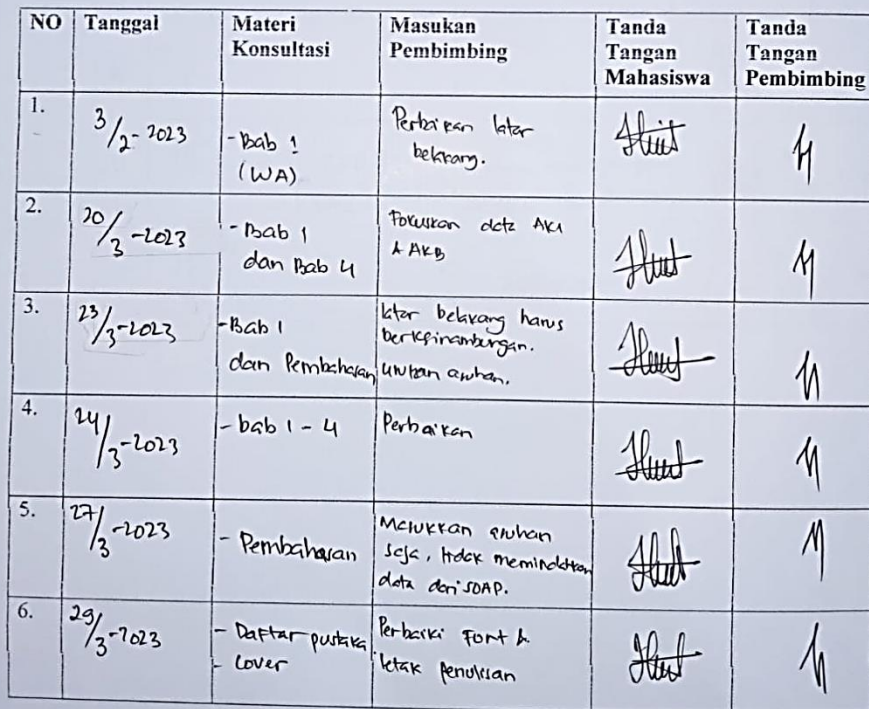 NO Tanggal Materi Konsultasi Masukan Pembimbing Tanda Tangan Mahasiswa Tanda Tangan Pembimbing
1. 3/2-2023 - Bab 1 (WA) Perbaikan latar belakang.
2. 20/3-2023 - Bab 1 dan Bab 4 Fokuskan data AKI & AKB
3. 23/3-2023 - Bab 1 dan Pembahasan latar belakang harus berkesinambungan. urutan asuhan.
4. 24/3-2023 - bab 1 - 4 Perbaikan
5. 27/3-2023 - Pembahasan asuhan saja, tidak memindahkan data dari SOAP.
6. 29/3-2023 - Daftar pustaka - Cover Perbaiki Font & letak penulisan